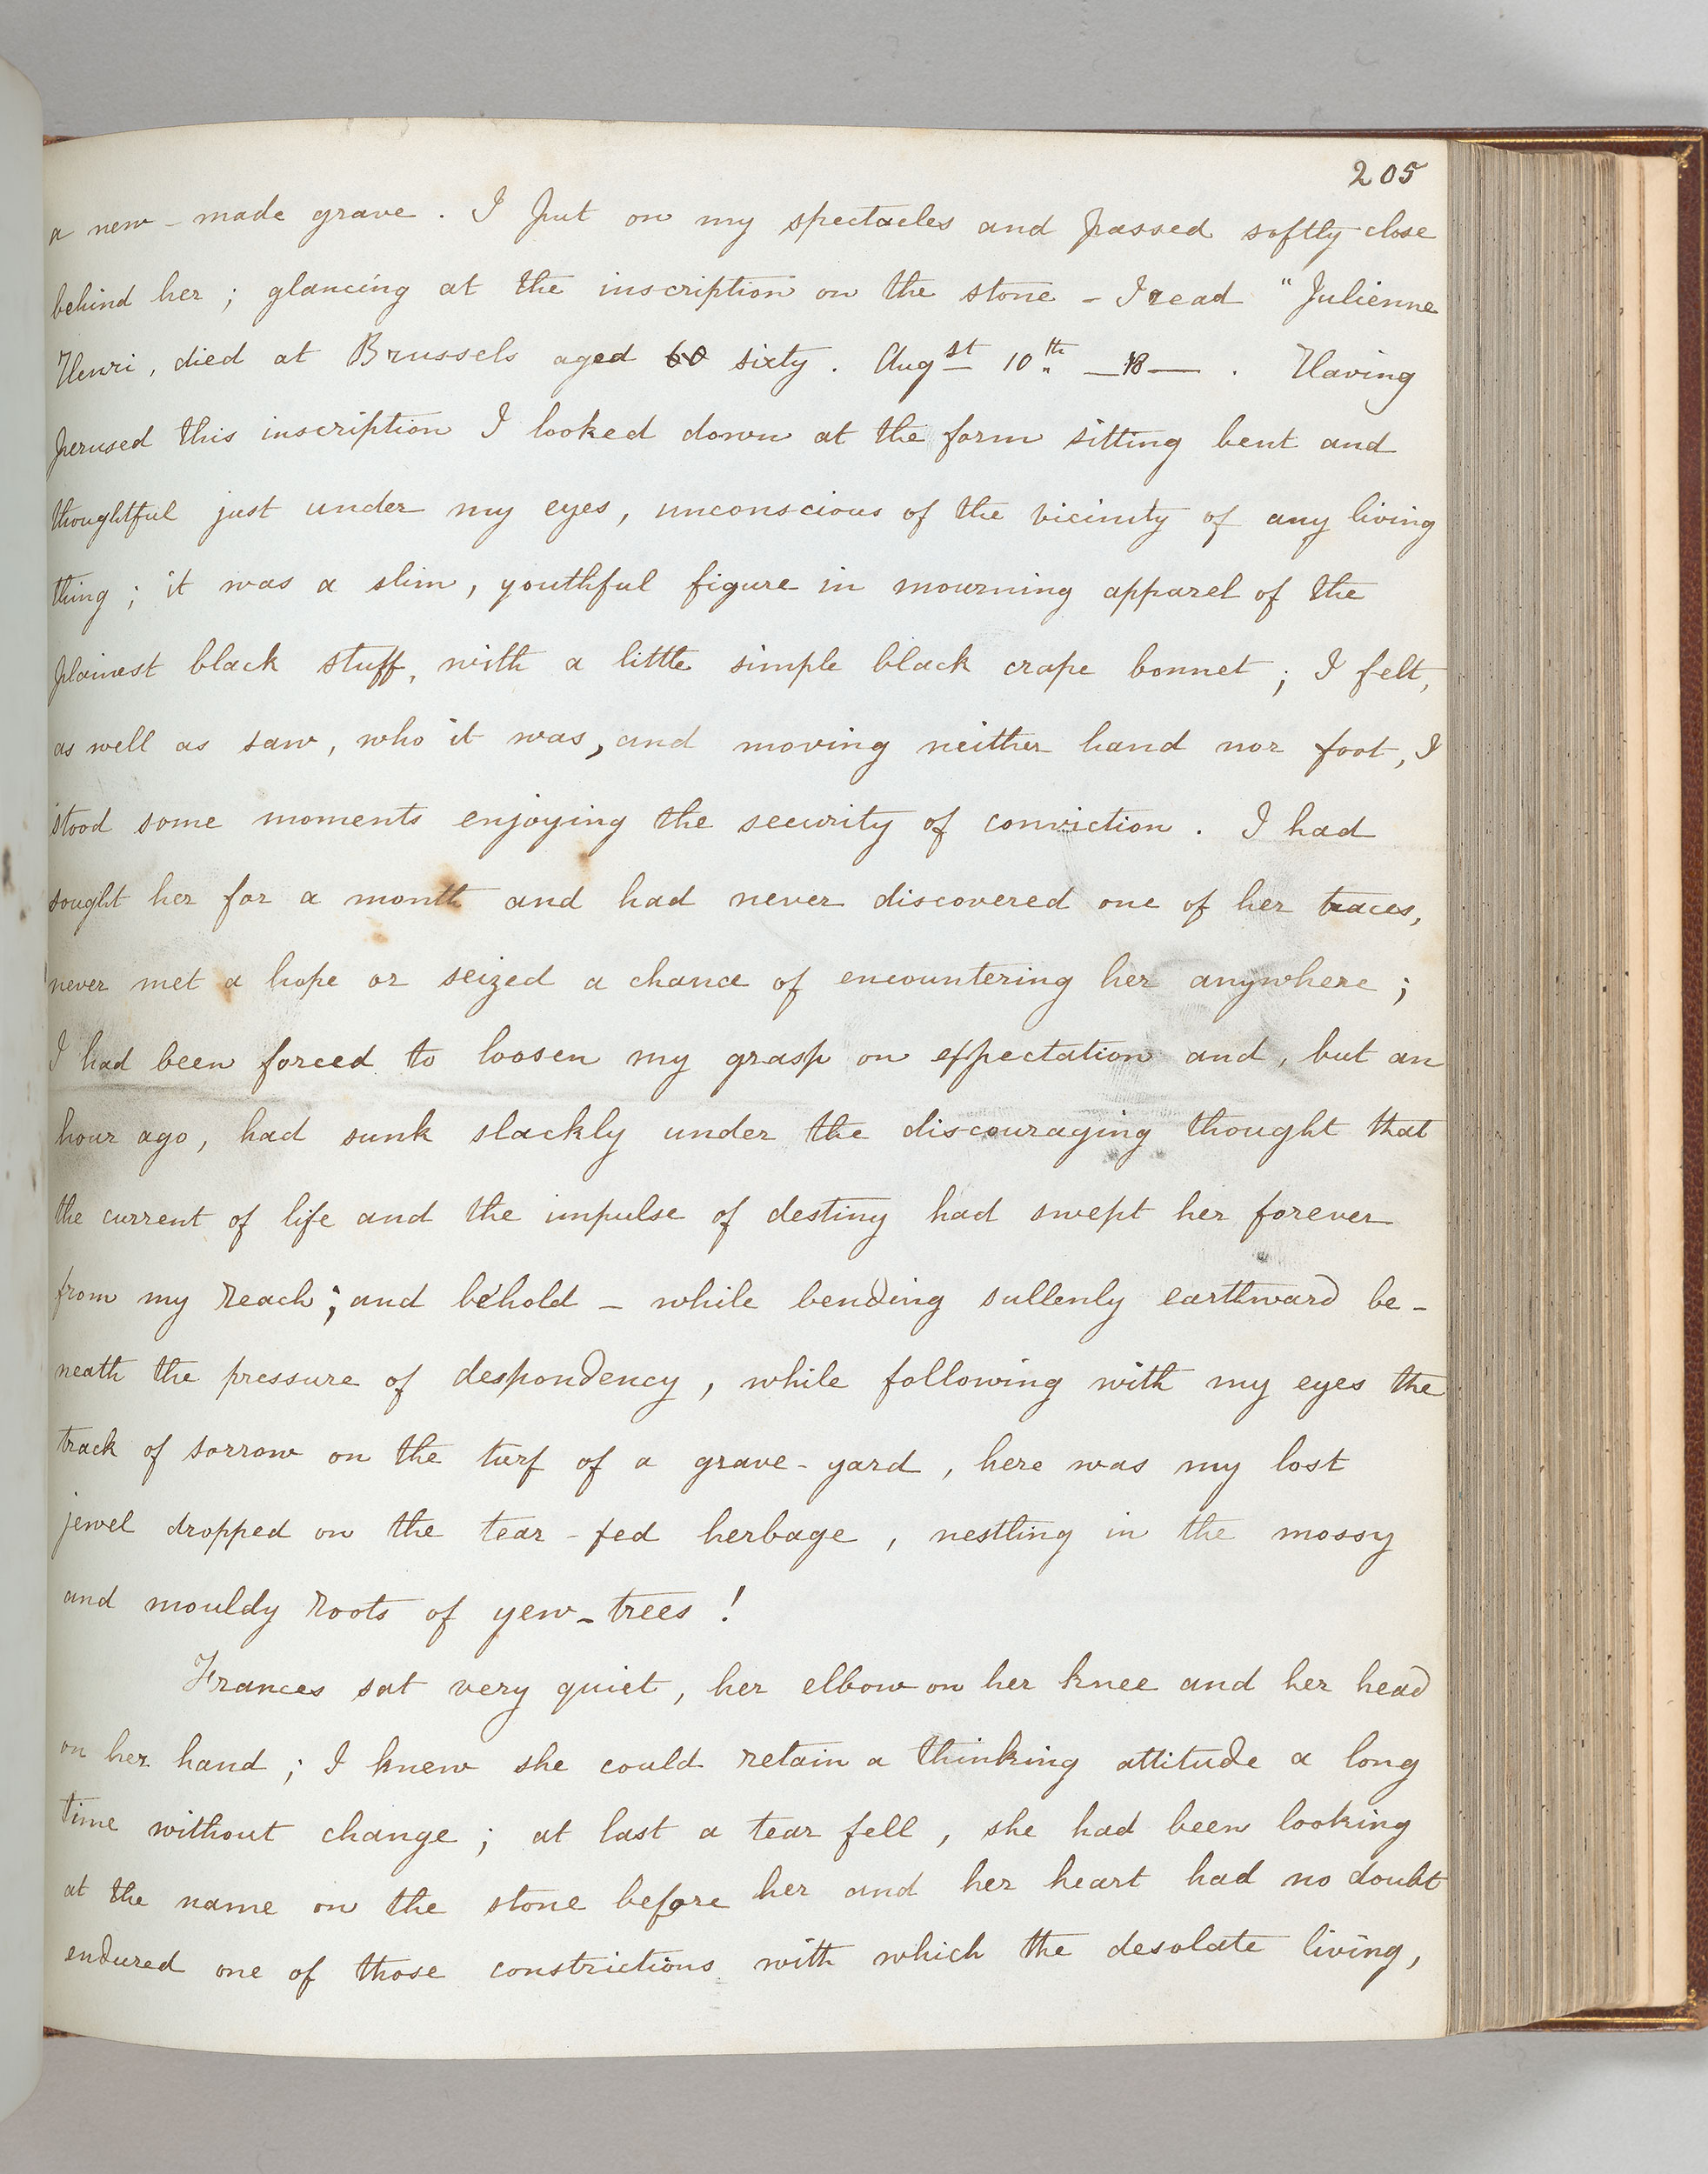 205
a new-made grave. I put on my spectacles and passed softly close
behind her; glancing at the inscription on the stone - I read "Julienne
Henri, died at Brussels aged 60 sixty. Augst 10th —18—. Having
perused this inscription I looked down at the form sitting bent and
thoughtful just under my eyes, unconscious of the vicinity of any living
thing; it was a slim, youthful figure in mourning apparel of the
plainest black stuff, with a little simple black crape bonnet; I felt,
as well as saw, who it was, and moving neither hand nor foot, I
stood some moments enjoying the security of conviction. I had
sought her for a month and had never discovered one of her traces,
never met a hope or seized a chance of encountering her anywhere;
I had been forced to loosen my grasp on expectation and, but an
hour ago, had sunk slackly under the discouraging thought that
the current of life and the impulse of destiny had swept her forever
from my reach; and behold - while bending sullenly earthward be-
neath the pressure of despondency, while following with my eyes the
track of sorrow on the turf of a grave-yard, here was my lost
jewel dropped on the tear-fed herbage, nestling in the mossy
and mouldy roots of yew-trees!
Frances sat very quiet, her elbow on her knee and her head
on her hand; I knew she could retain a thinking attitude a long
time without change; at last a tear fell, she had been looking
at the name on the stone before her and her heart had no doubt
endured one of those constrictions with which the desolate living,